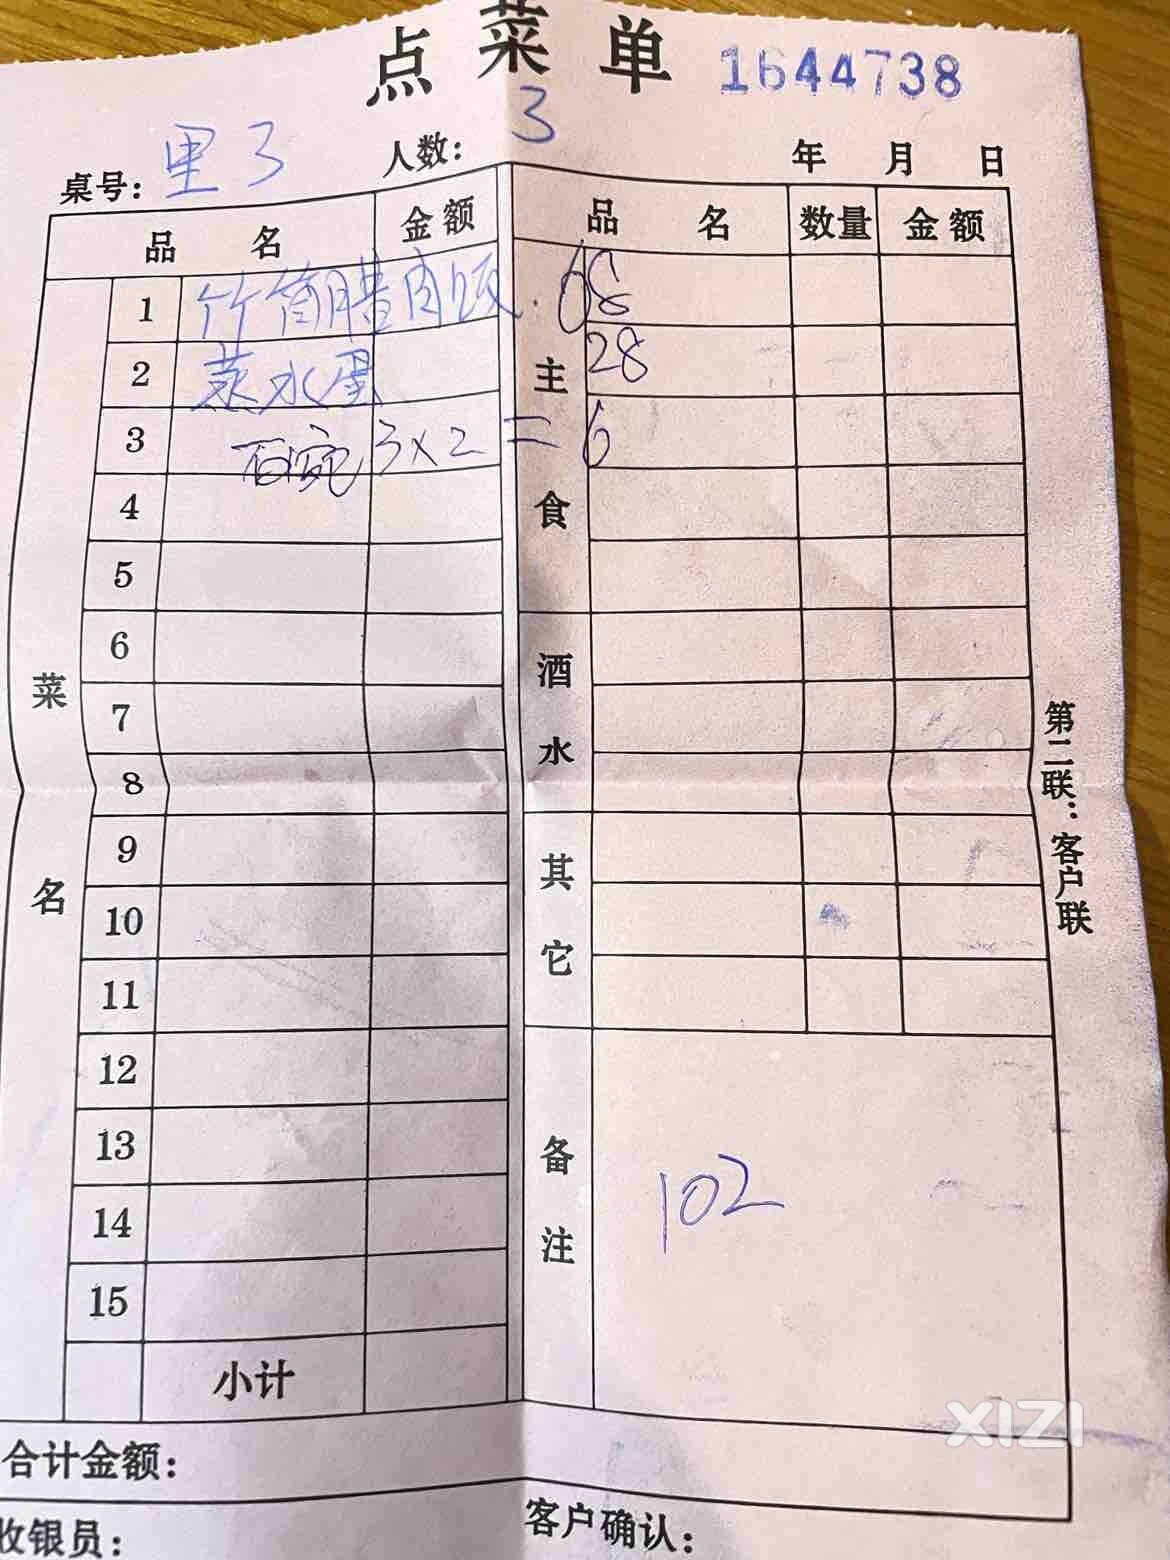 点菜单 1644738
桌号: 里3 人数: 3 年 月 日
品名 金额 品名 数量 金额
菜名
1 竹筒腊肉饭. 68
2 蒸水蛋 28
3 碗 3×2=6
4
5
6
7
8
9
10
11
12
13
14
15
小计
主食
酒水
其它
备注 102
第二联:客户联
合计金额:
收银员: 客户确认:
XIZI